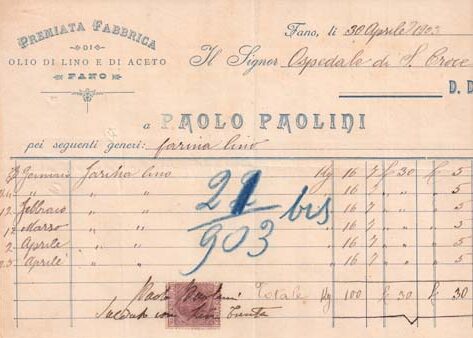 PREMIATA FABBRICA
DI
OLIO DI LINO E DI ACETO
FANO
Fano, li 30 Aprile 1903
Il Signor Ospedale di S. Croce
D. D
a PAOLO PAOLINI
pei seguenti generi: farina lino
Gennaio farina lino Kg 16 7 £ 30 £ 5
" " " 16 7 " " " 5
12 Febbraio " " " 16 7 " " " 5
12 Marzo " " " 16 7 " " " 5
2 Aprile " " " 16 7 " " " 5
23 Aprile " " " 16 7 " " " 5
22/903 bis
Totale Kg 100 £ 30 £ 30
Paolo Paolini
Saldato con Lire Trenta